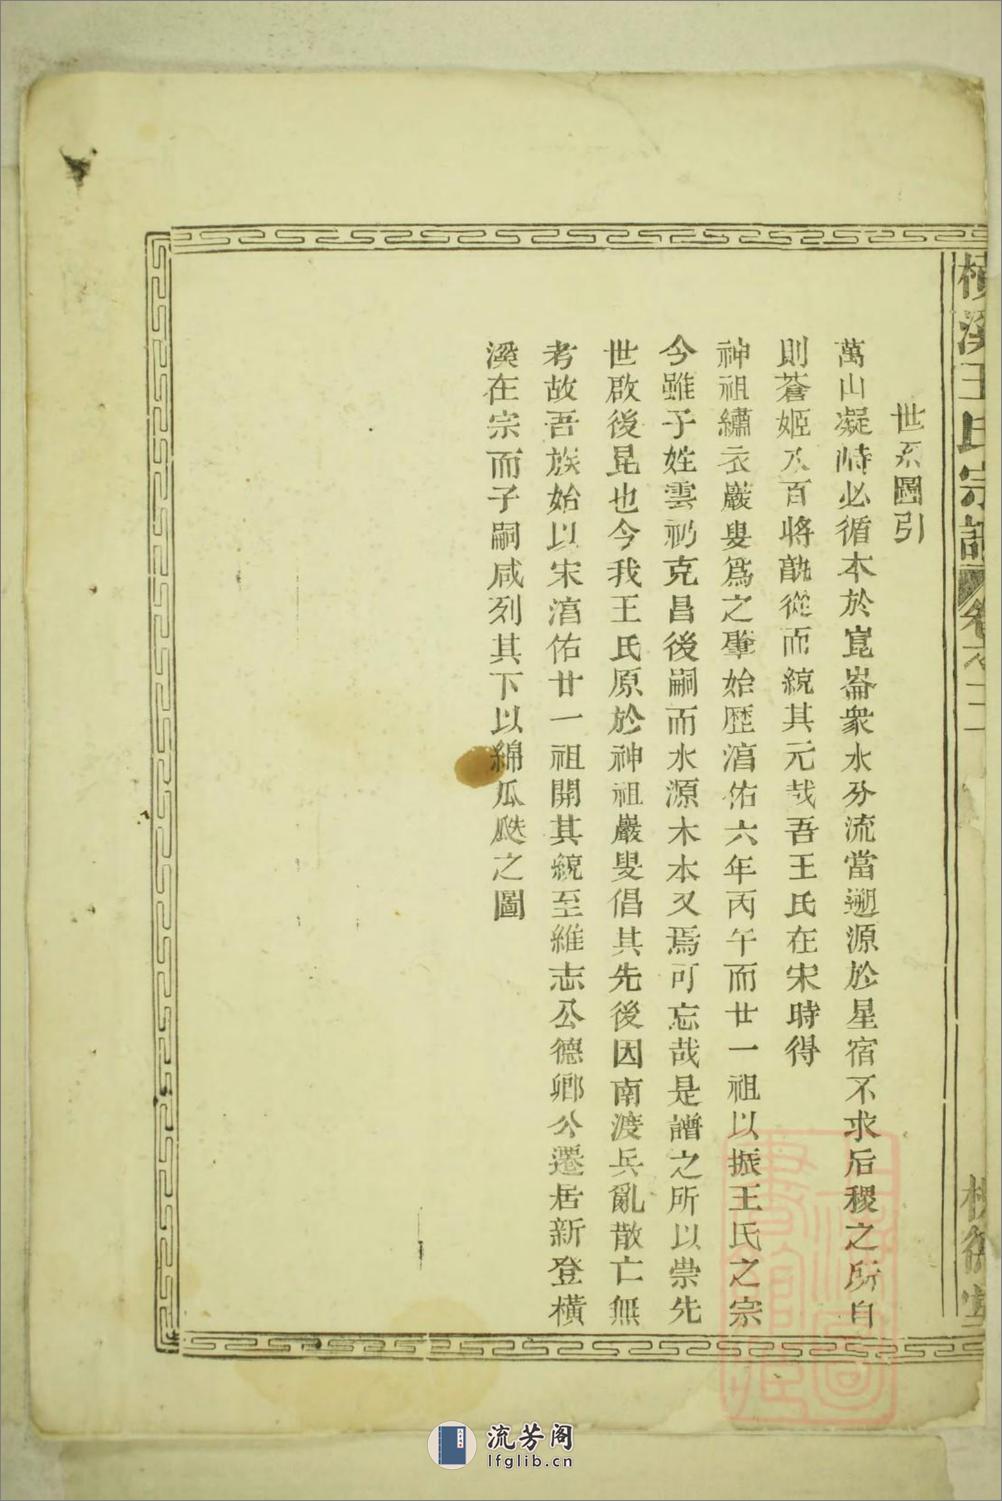 橫溪王氏宗譜
卷之二
世系圖引
萬山凝峙必循本於崑崙衆水分流當遡源於星宿不求后稷之所自
則蒼姬八百將孰從而統其元哉吾王氏在宋時得
神祖繡衣嚴叟爲之肇始歷淯佑六年丙午而廿一祖以振王氏之宗
今雖子姓雲礽克昌後嗣而水源木本又焉可忘哉是譜之所以崇先
世啟後昆也今我王氏原於神祖嚴叟倡其先後因南渡兵亂散亡無
考故吾族始以宋淯佑廿一祖開其統至維志公德卿公遷居新登橫
溪在宗而子嗣咸列其下以綿瓜瓞之圖
上海圖書館藏
流芳阁
lfglib.cn